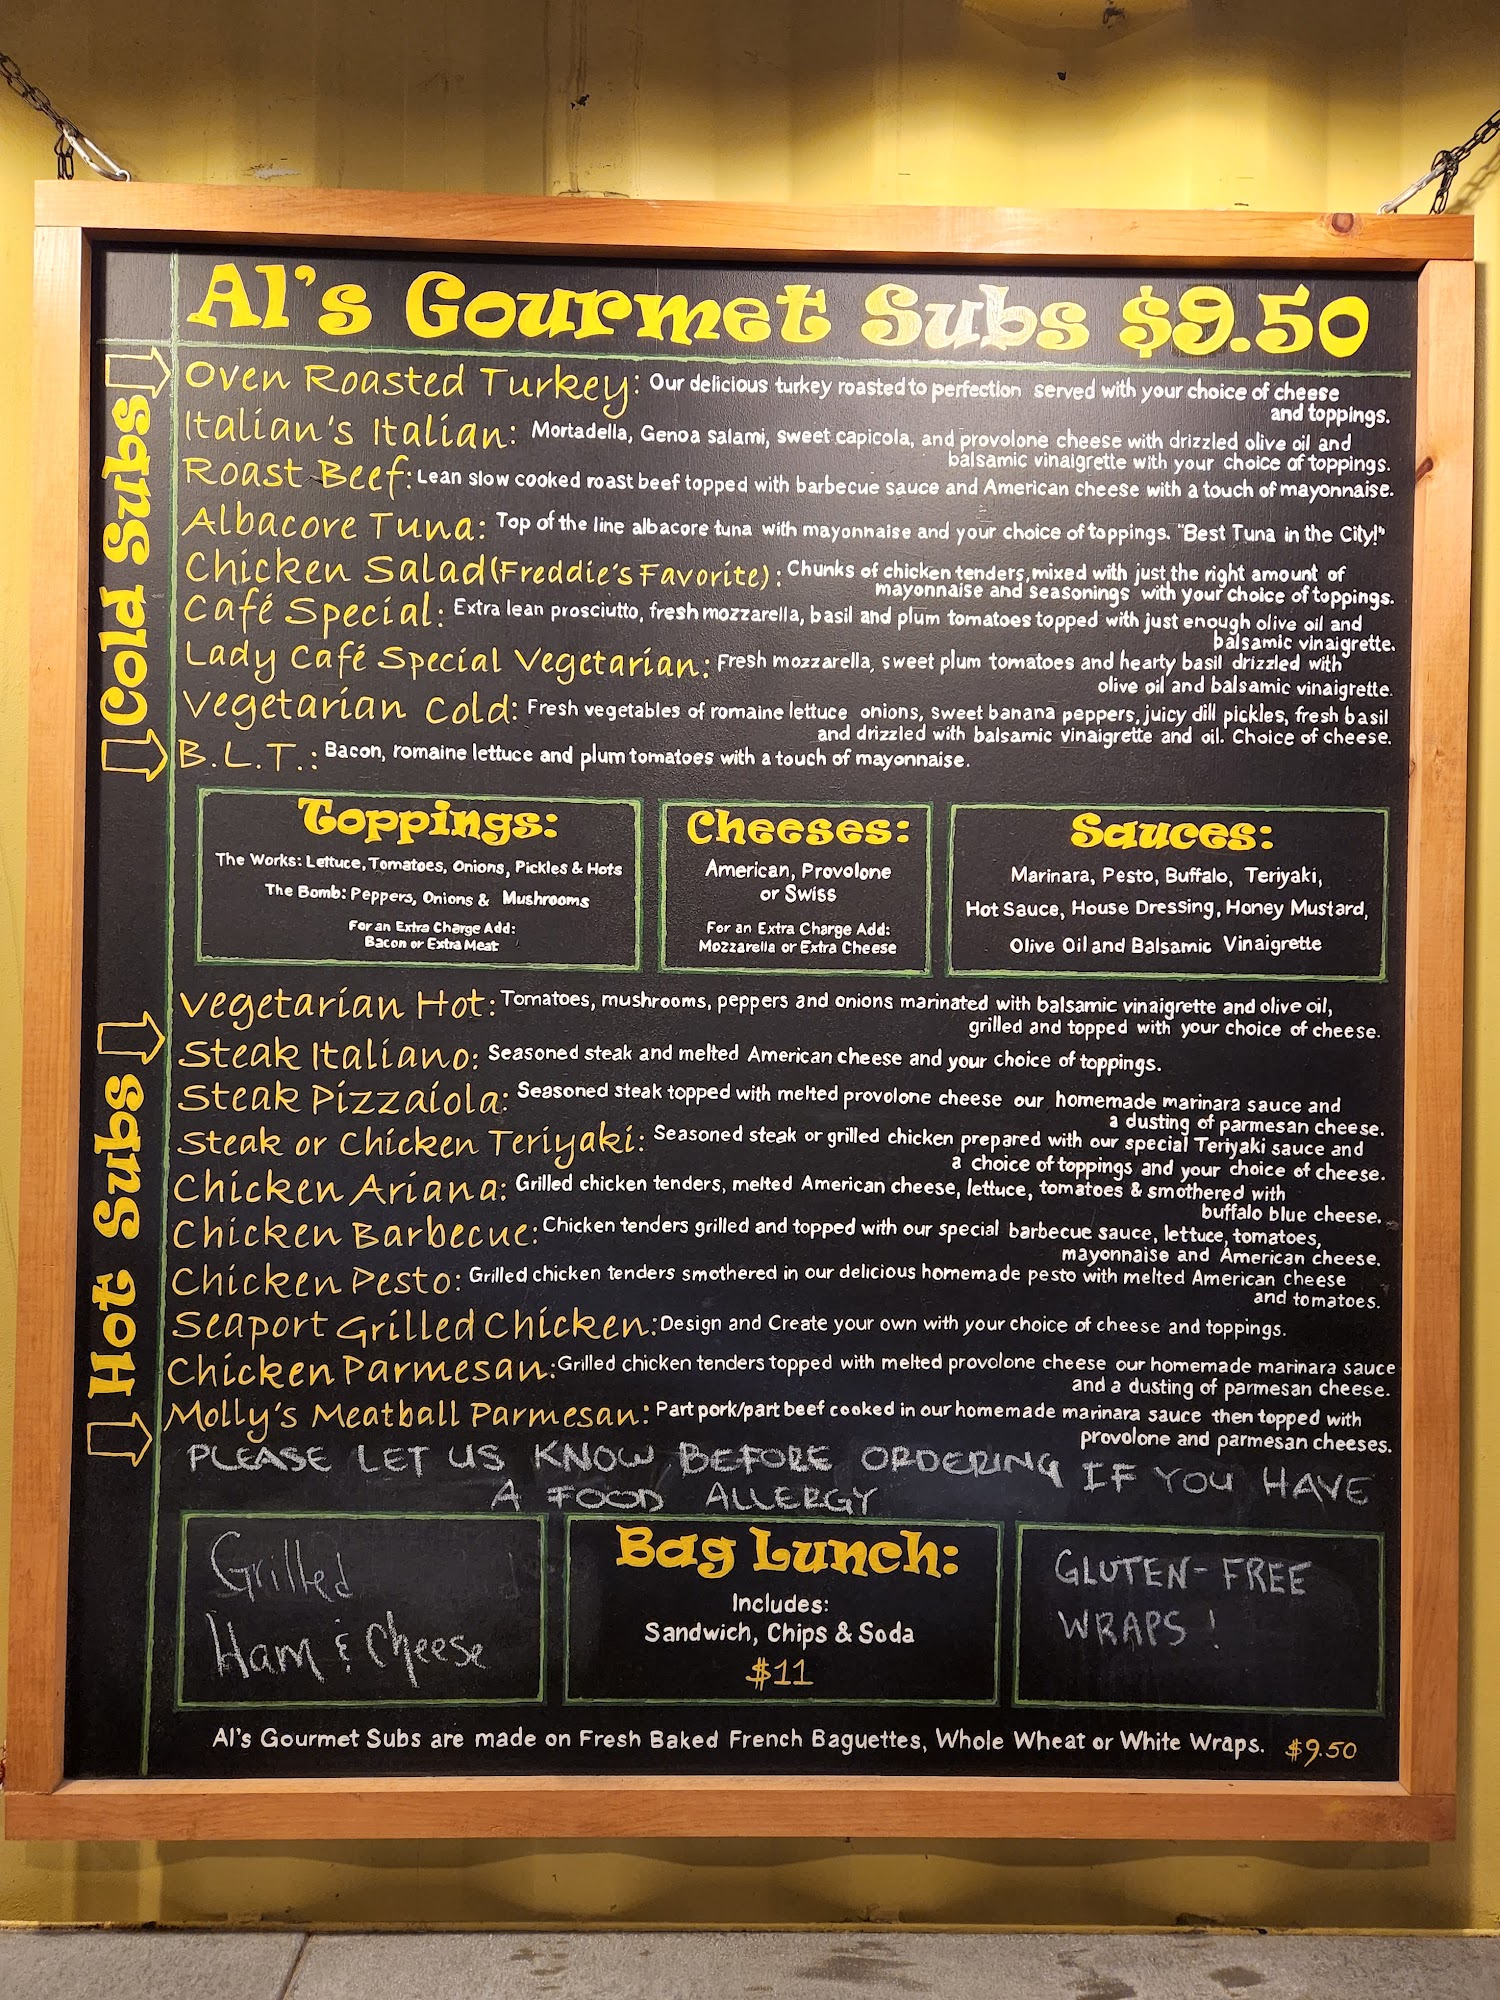 Al's Gourmet Subs $9.50
Cold Subs
Oven Roasted Turkey: Our delicious turkey roasted to perfection served with your choice of cheese
and toppings.
Italian's Italian: Mortadella, Genoa salami, sweet capicola, and provolone cheese with drizzled olive oil and
balsamic vinaigrette with your choice of toppings.
Roast Beef: Lean slow cooked roast beef topped with barbecue sauce and American cheese with a touch of mayonnaise.
Albacore Tuna: Top of the line albacore tuna with mayonnaise and your choice of toppings. "Best Tuna in the City!"
Chicken Salad (Freddie's Favorite): Chunks of chicken tenders, mixed with just the right amount of
mayonnaise and seasonings with your choice of toppings.
Café Special: Extra lean prosciutto, fresh mozzarella, basil and plum tomatoes topped with just enough olive oil and
balsamic vinaigrette.
Lady Café Special Vegetarian: Fresh mozzarella, sweet plum tomatoes and hearty basil drizzled with
olive oil and balsamic vinaigrette.
Vegetarian Cold: Fresh vegetables of romaine lettuce onions, sweet banana peppers, juicy dill pickles, fresh basil
and drizzled with balsamic vinaigrette and oil. Choice of cheese.
B.L.T.: Bacon, romaine lettuce and plum tomatoes with a touch of mayonnaise.
Toppings:
The Works: Lettuce, Tomatoes, Onions, Pickles & Hots
The Bomb: Peppers, Onions & Mushrooms
For an Extra Charge Add:
Bacon or Extra Meat
Cheeses:
American, Provolone
or Swiss
For an Extra Charge Add:
Mozzarella or Extra Cheese
Sauces:
Marinara, Pesto, Buffalo, Teriyaki,
Hot Sauce, House Dressing, Honey Mustard,
Olive Oil and Balsamic Vinaigrette
Hot Subs
Vegetarian Hot: Tomatoes, mushrooms, peppers and onions marinated with balsamic vinaigrette and olive oil,
grilled and topped with your choice of cheese.
Steak Italiano: Seasoned steak and melted American cheese and your choice of toppings.
Steak Pizzaiola: Seasoned steak topped with melted provolone cheese our homemade marinara sauce and
a dusting of parmesan cheese.
Steak or Chicken Teriyaki: Seasoned steak or grilled chicken prepared with our special Teriyaki sauce and
a choice of toppings and your choice of cheese.
Chicken Ariana: Grilled chicken tenders, melted American cheese, lettuce, tomatoes & smothered with
buffalo blue cheese.
Chicken Barbecue: Chicken tenders grilled and topped with our special barbecue sauce, lettuce, tomatoes,
mayonnaise and American cheese.
Chicken Pesto: Grilled chicken tenders smothered in our delicious homemade pesto with melted American cheese
and tomatoes.
Seaport Grilled Chicken: Design and Create your own with your choice of cheese and toppings.
Chicken Parmesan: Grilled chicken tenders topped with melted provolone cheese our homemade marinara sauce
and a dusting of parmesan cheese.
Molly's Meatball Parmesan: Part pork/part beef cooked in our homemade marinara sauce then topped with
provolone and parmesan cheeses.
PLEASE LET US KNOW BEFORE ORDERING IF YOU HAVE
A FOOD ALLERGY
Grilled
Ham & Cheese
Bag Lunch:
Includes:
Sandwich, Chips & Soda
$11
GLUTEN-FREE
WRAPS!
Al's Gourmet Subs are made on Fresh Baked French Baguettes, Whole Wheat or White Wraps. $9.50